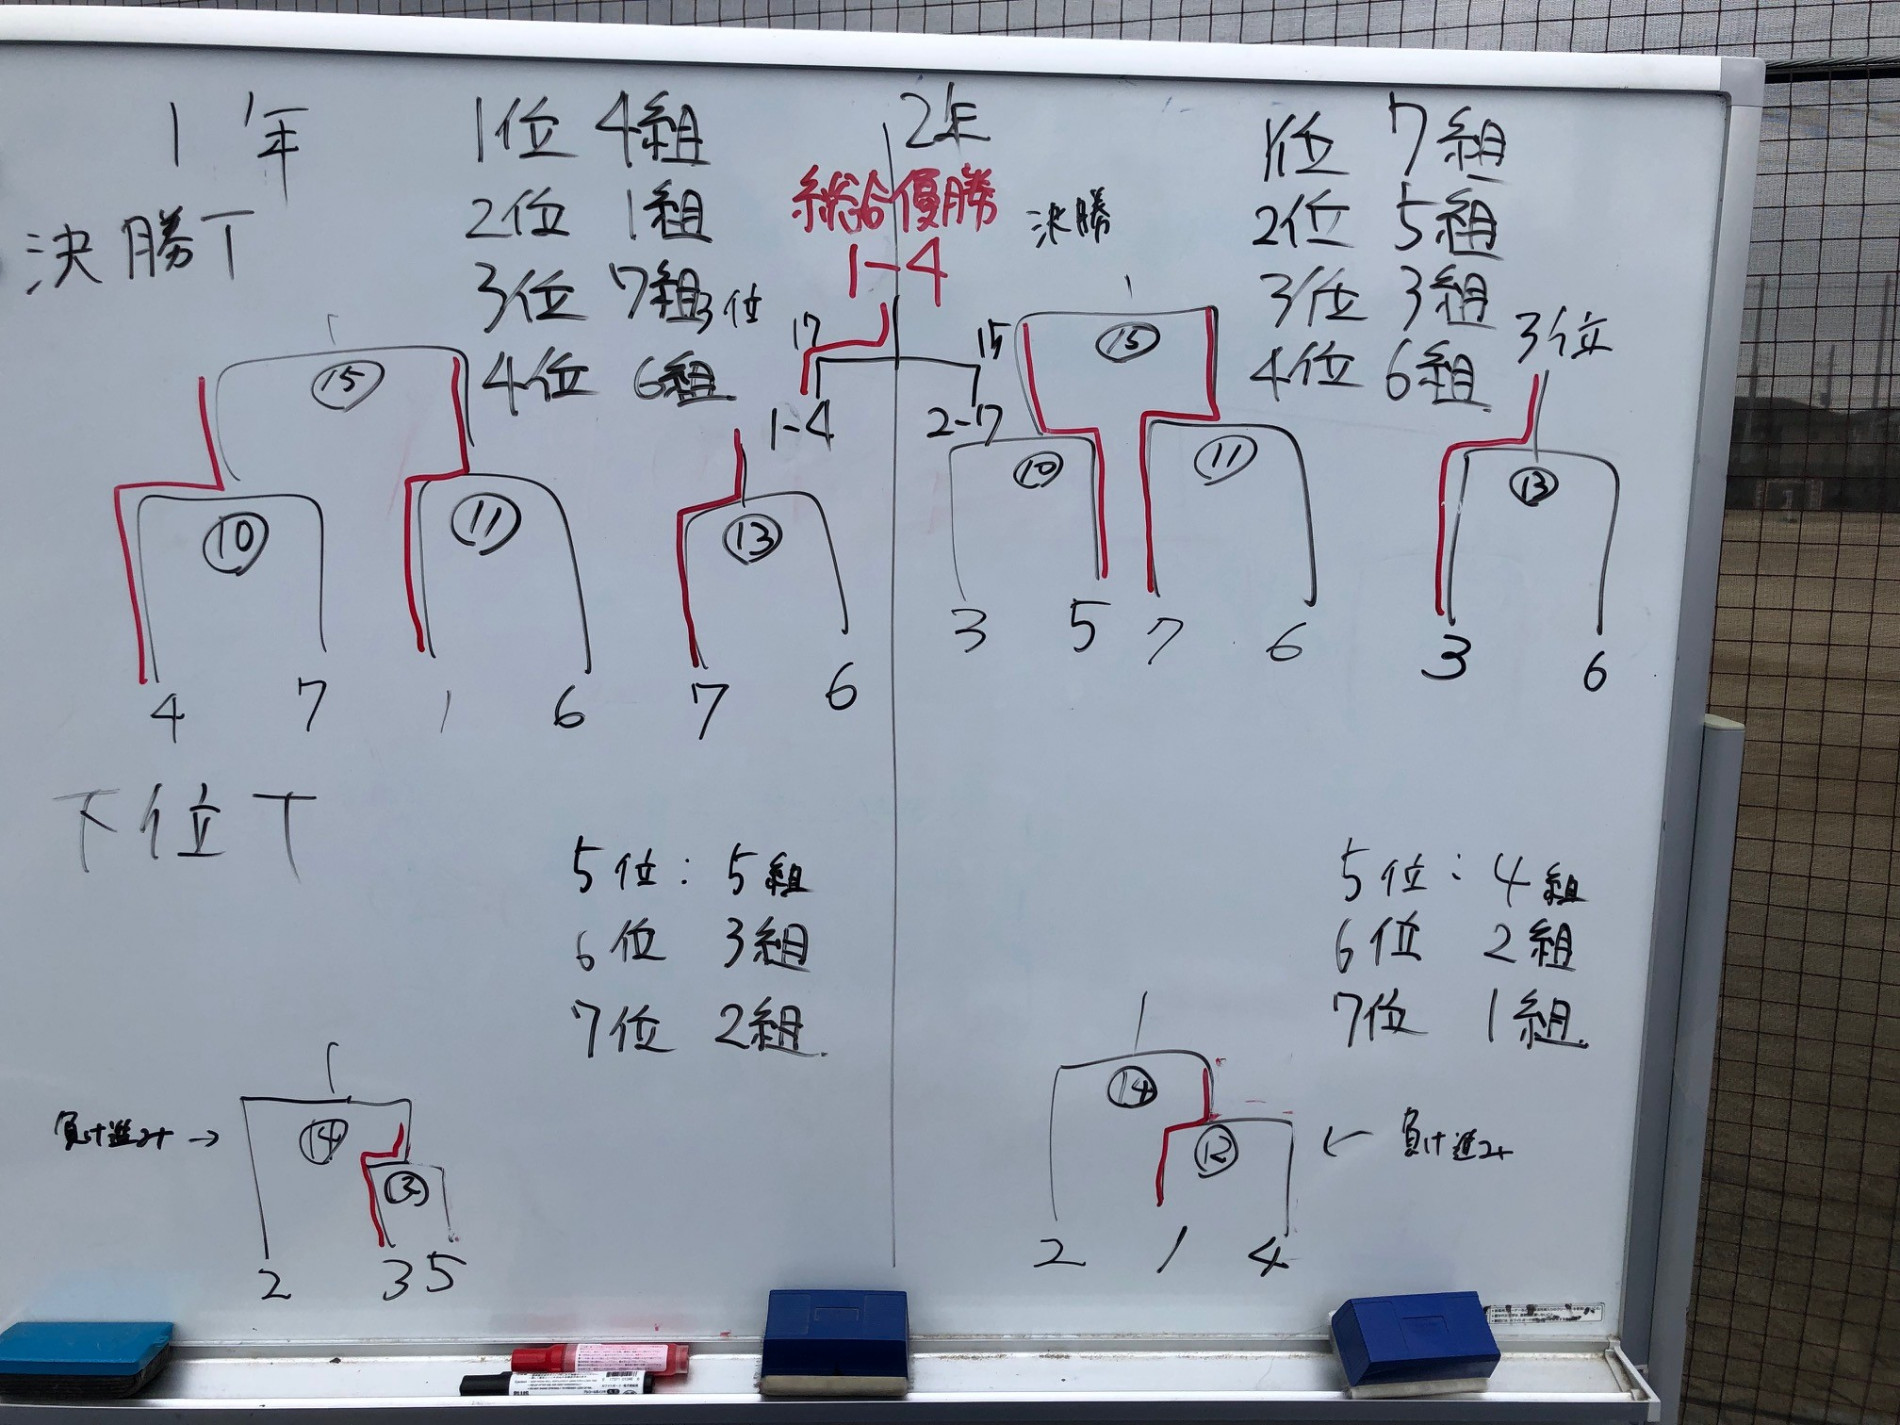 1年
決勝T
1位 4組
2位 1組
3位 7組
4位 6組
3位
⑮
⑩
⑪
⑬
4 7 1 6 7 6
総合優勝
1-4
17 15
1-4 2-17
2年
決勝
1位 7組
2位 5組
3位 3組
4位 6組
3位
⑮
⑩
⑪
⑬
3 5 7 6 3 6
下位T
5位:5組
6位 3組
7位 2組
負け進む→
⑭
2 3 5
5位:4組
6位 2組
7位 1組
⑭
⑫
←負け進む
2 1 4